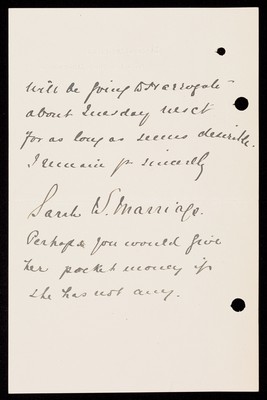 will be going to Harrogate
about Tuesday next
for as long as seems desirable.
I remain yr sincerely
Sarah W. Marriage.
Perhaps you would give
her pocket money if
she has not any.